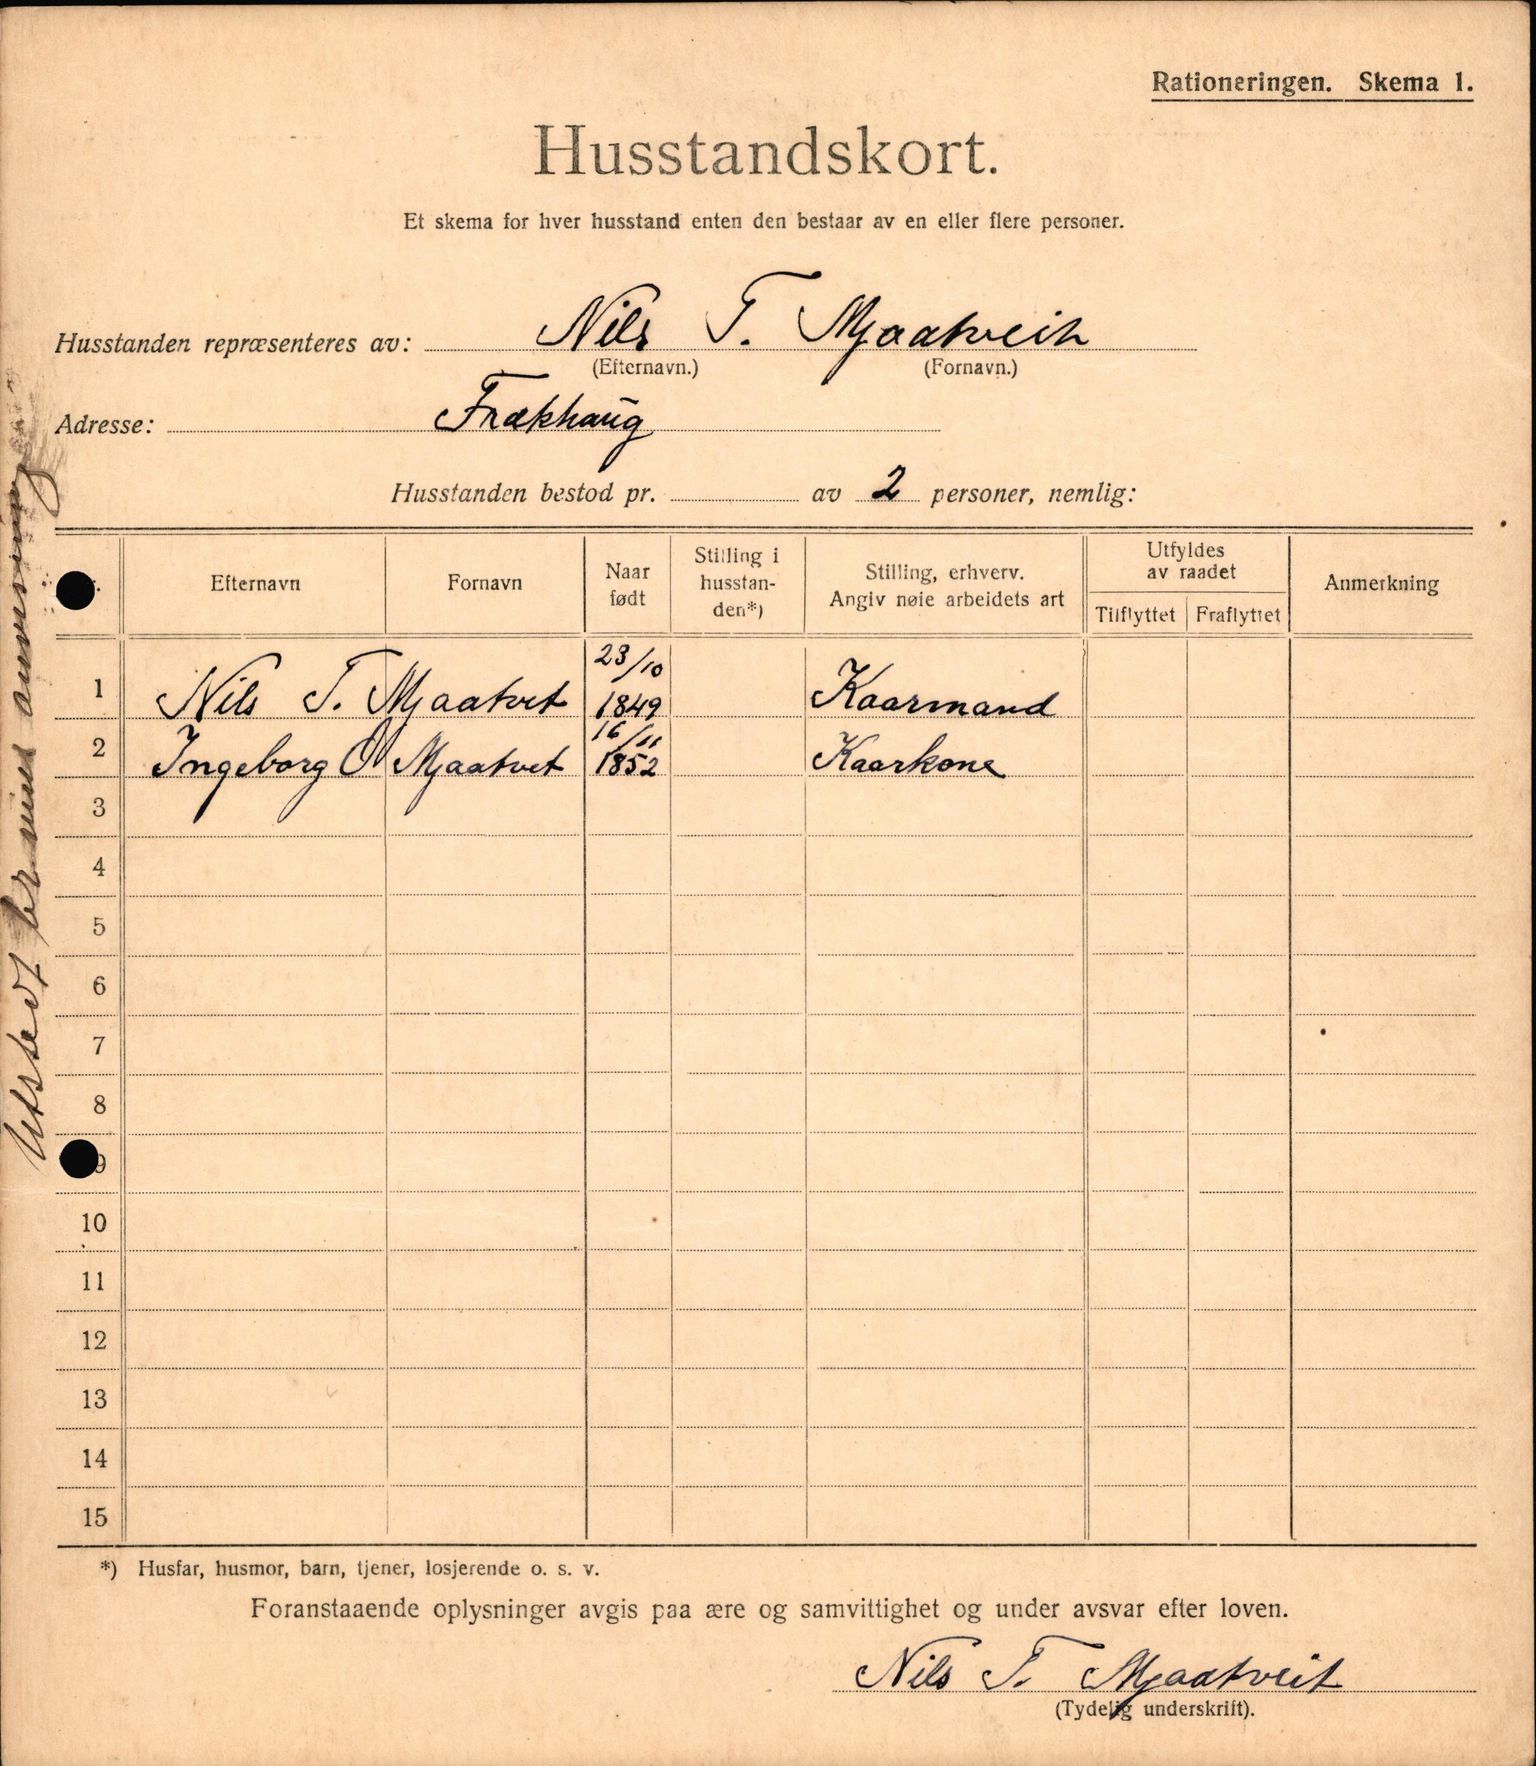 Rationeringen. Skema 1.
Husstandskort.
Et skema for hver husstand enten den bestaar av en eller flere personer.
Husstanden repræsenteres av: Nils T. Mjaatveit
(Efternavn.) (Fornavn.)
Adresse: Frækhaug
Husstanden bestod pr. av 2 personer, nemlig:
Efternavn Fornavn Naar født Stilling i husstan-den*) Stilling, erhverv. Angiv nøie arbeidets art Utfyldes av raadet Tilflyttet Fraflyttet Anmerkning
1 Nils T. Mjaatvet 23/10 1849 Kaarmand
2 Ingeborg O Mjaatvet 16/11 1852 Kaarkone
3
4
5
6
7
8
9
10
11
12
13
14
15
*) Husfar, husmor, barn, tjener, losjerende o. s. v.
Foranstaaende oplysninger avgis paa ære og samvittighet og under avsvar efter loven.
Nils T. Mjaatveit
(Tydelig underskrift).
Utstedt anvisning